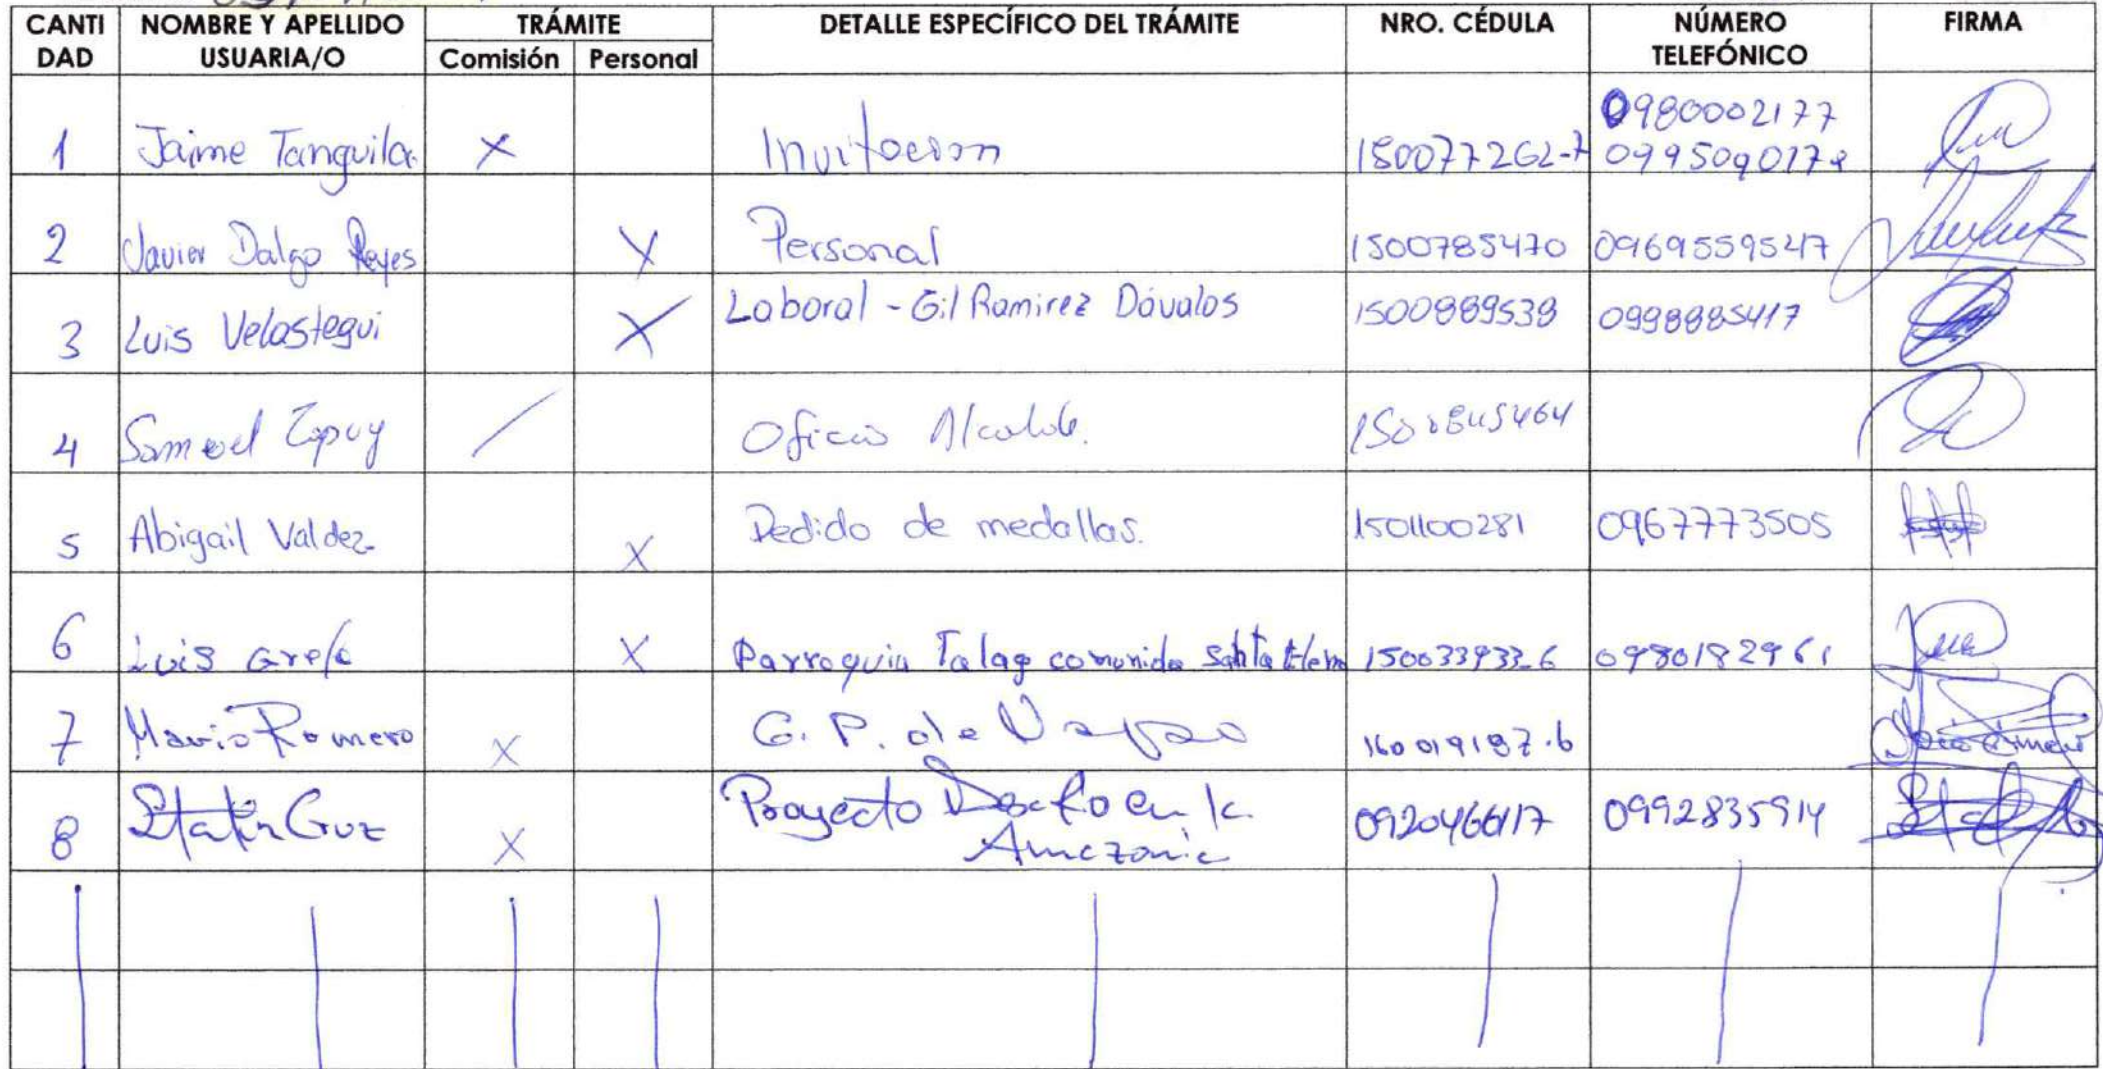 CANTI DAD NOMBRE Y APELLIDO USUARIA/O TRÁMITE Comisión Personal DETALLE ESPECÍFICO DEL TRÁMITE NRO. CÉDULA NÚMERO TELEFÓNICO FIRMA
1 Jaime Tanguila X Invitacion 150077262-7 0980002177
099509017
2 Javier Dalgo Reyes X Personal 1500785470 0969559547
3 Luis Velastegui X Laboral - Gil Ramirez Dávalos 1500889539 0998885417
4 Samuel / Oficio Alcalde.
5 Abigail Valdez X Pedido de medallas. 1501100281 0967773505
6 Luis Grefa X Parroquia Talag comunida Santa Elena 150033933-6 0980182961
7 Mario Romero X G. P. de Napo 160019187-6
8 Stalin Guz X Proyecto en la
Amazonia 0920466117 0992835914